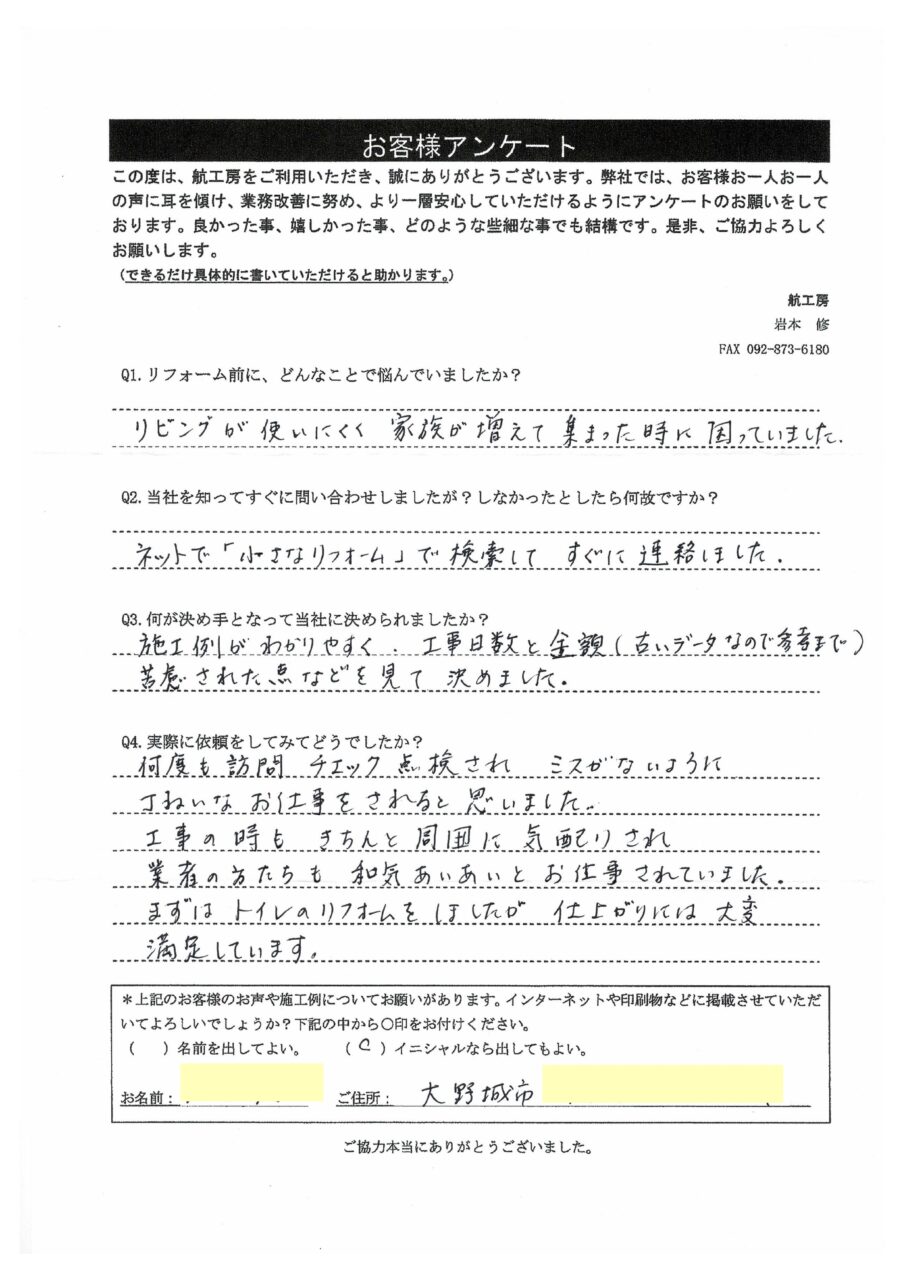 お客様アンケート
この度は、航工房をご利用いただき、誠にありがとうございます。弊社では、お客様お一人お一人
の声に耳を傾け、業務改善に努め、より一層安心していただけるようにアンケートのお願いをして
おります。良かった事、嬉しかった事、どのような些細な事でも結構です。是非、ご協力よろしく
お願いします。
（できるだけ具体的に書いていただけると助かります。）
航工房
岩本 修
FAX 092-873-6180
Q1.リフォーム前に、どんなことで悩んでいましたか？
リビングが使いにくく 家族が増えて集まった時に困っていました.
Q2.当社を知ってすぐに問い合わせしましたが？しなかったとしたら何故ですか？
ネットで「小さなリフォーム」で検索して すぐに連絡しました.
Q3.何が決め手となって当社に決められましたか？
施工例がわかりやすく. 工事日数と金額(古いデータなので参考まで)
苦慮された点などを見て 決めました.
Q4.実際に依頼をしてみてどうでしたか？
何度も訪問 チェック点検され ミスがないように
丁ねいなお仕事をされると思いました.
工事の時も きちんと周囲に気配りされ
業者の方たちも 和気あいあいとお仕事されていました.
まずはトイレのリフォームをしましたが 仕上がりには大変
満足しています.
＊上記のお客様のお声や施工例についてお願いがあります。インターネットや印刷物などに掲載させていただ
いてよろしいでしょうか？下記の中から〇印をお付けください。
（ ）名前を出してよい。 （○）イニシャルなら出してもよい。
お名前： ご住所： 大野城市
ご協力本当にありがとうございました。